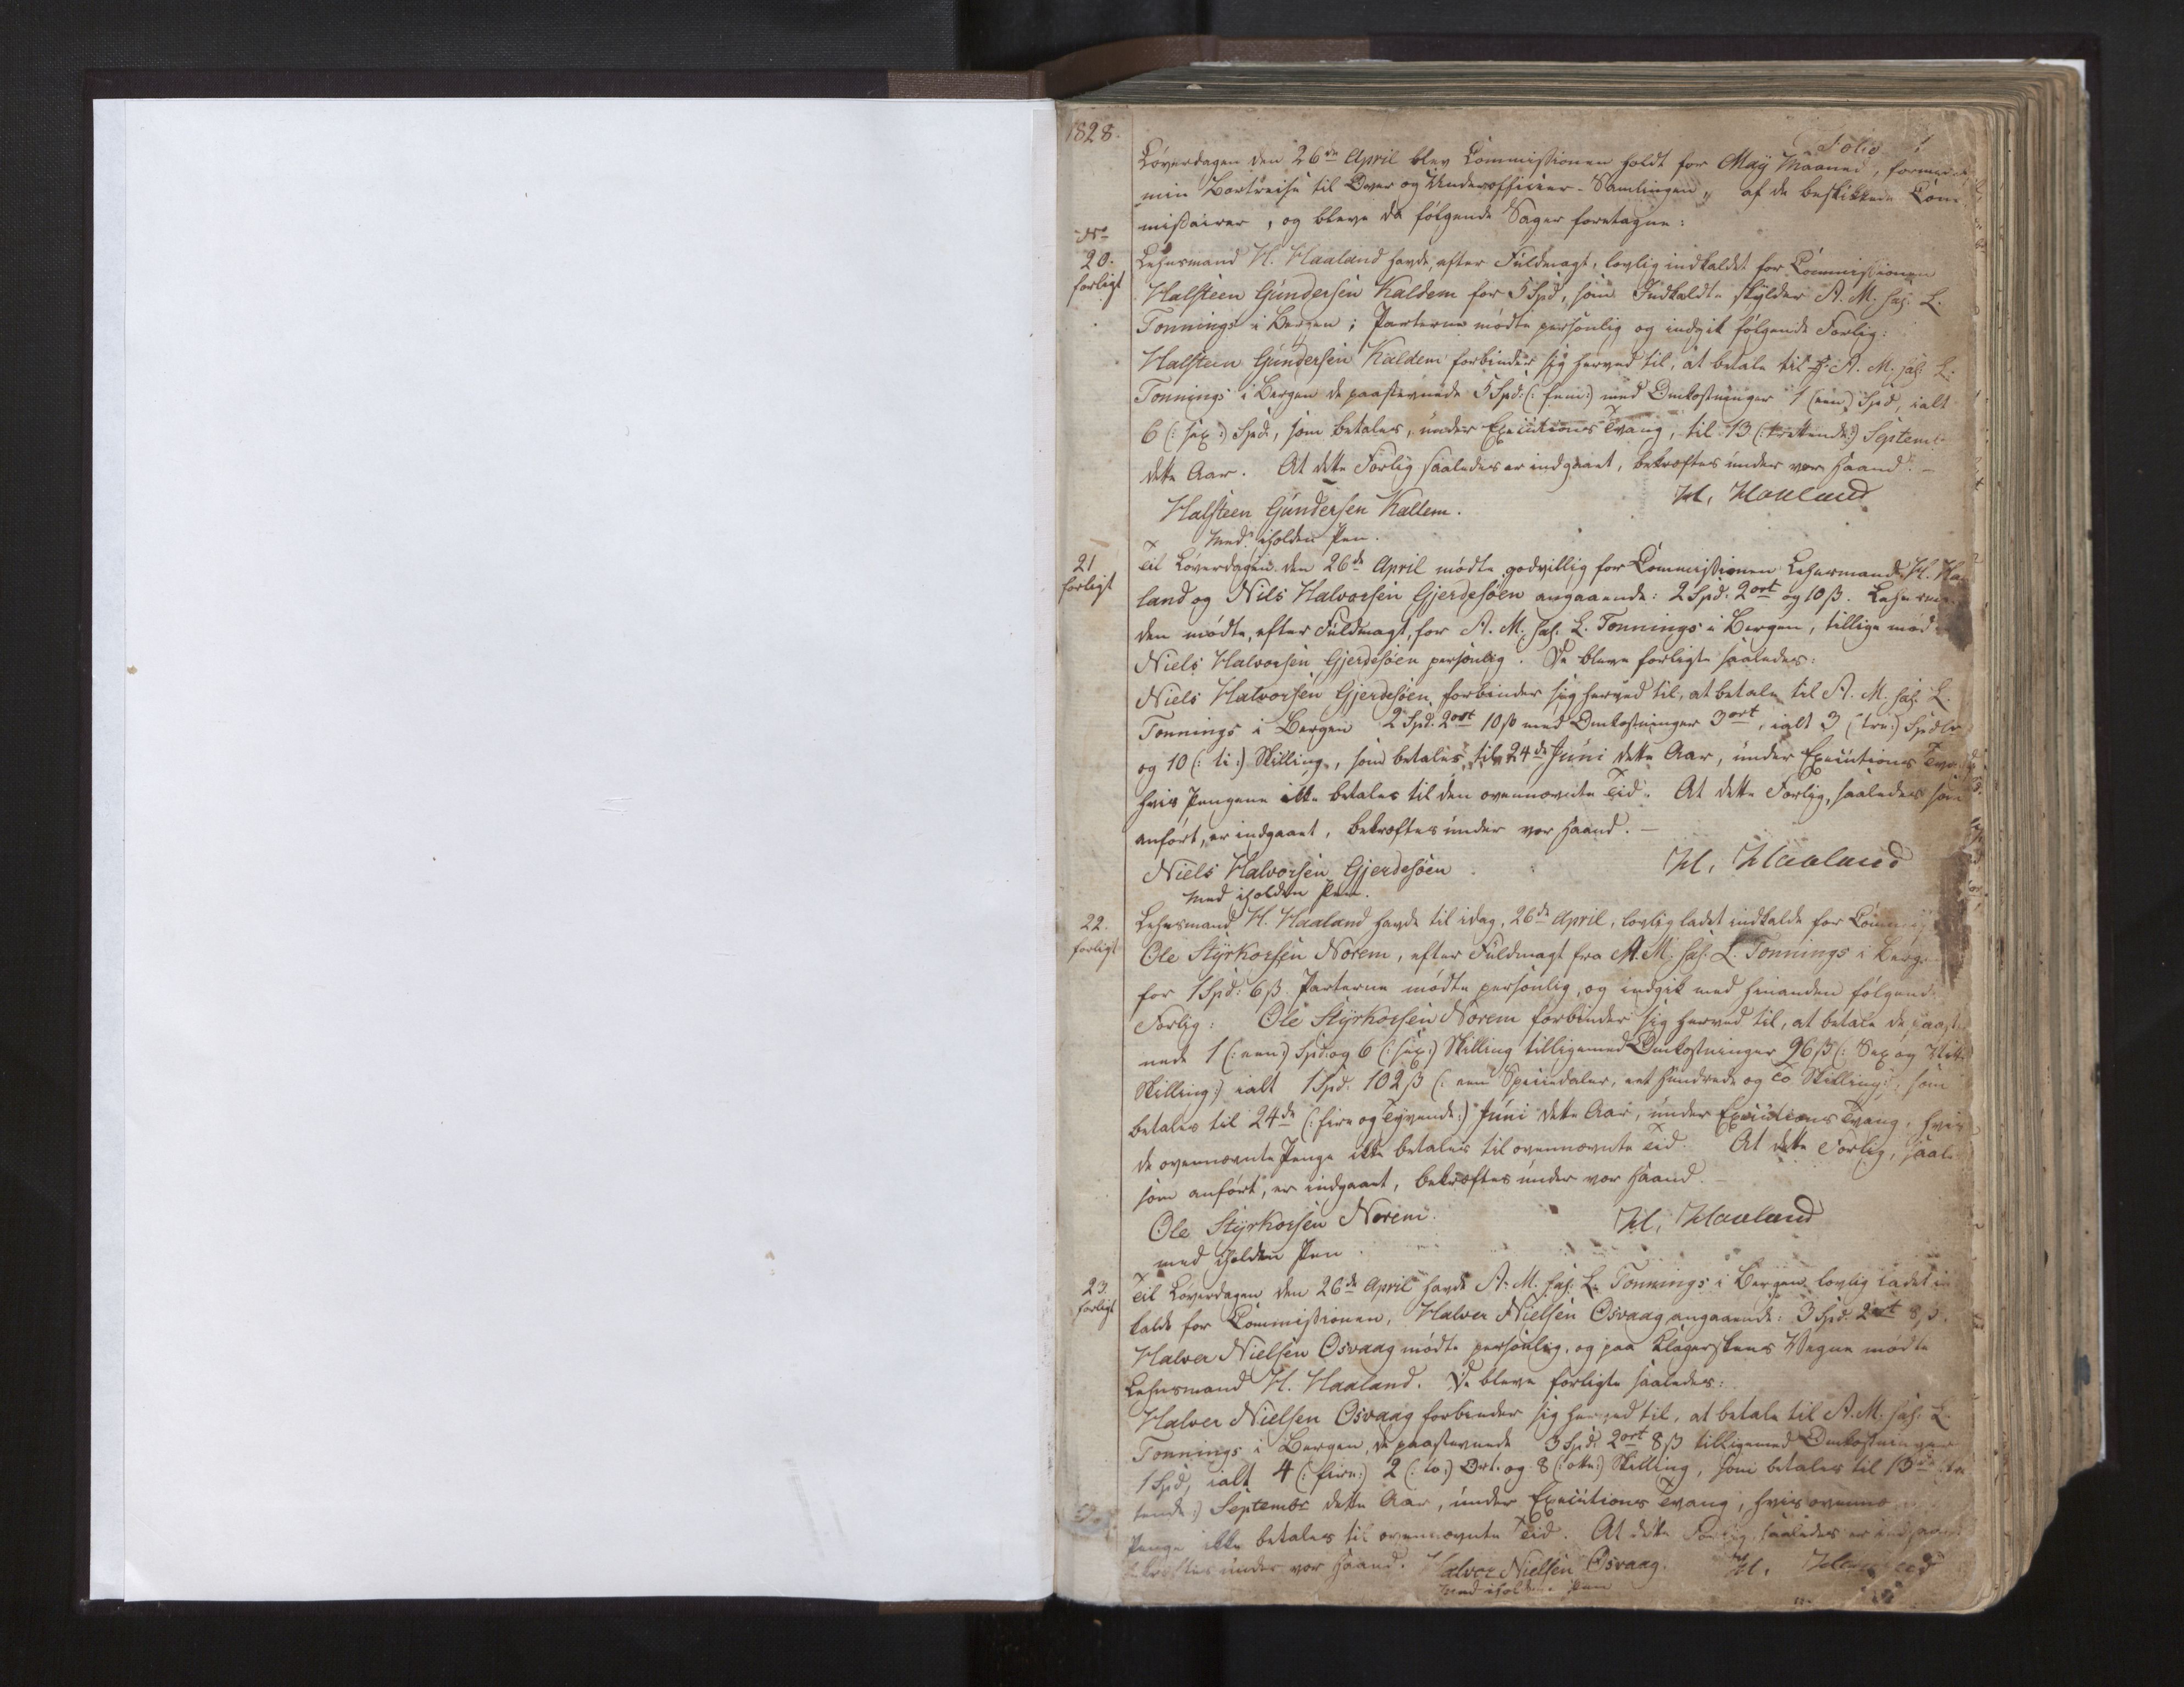 1828.
Folio 1
Løverdagen den 26de April blev Commissionen holdt for Maÿ Maaned, formedelst
min Bortreise til Over og Underofficier-Samlingen, af de beskikkede Com-
missairer, og bleve da følgende Sager foretagne:
No
20.
forligt
Lehnsmand H. Haaland havde, efter Fuldmagt, lovlig indkaldet for Commissionen
Halsteen Gundersen Kaldem for 5 Spd, som Indkaldte skylder A. M. sal. L.
Tonnings i Bergen; Parterne mødte personlig og indgik følgende Forlig:
Halsteen Gundersen Kaldem forbinder sig herved til, at betale til A. M. sal. L.
Tonnings i Bergen de paastevnede 5 Spd: (: fem:) med Omkostninger 1 (een) Spd, ialt
6 (: sex:) Spd, som betales, under Executions Tvang, til 13 (: trettende:) Septemb
dette Aar. At dette Forlig saaledes er indgaaet, bekræftes under vor Haand. –
Halsteen Gundersen Kallem. H. Haaland
Med iholden Pen.
21
forligt
Til Løverdagen den 26de April mødte godvillig for Commissionen Lehnsmand H. Haa
land og Nils Halvorsen Gjerdesøen angaaende: 2 Spd. 2 ort og 10 ß. Lehnsman
den mødte, efter Fuldmagt, for A. M. sal. L. Tonnings i Bergen, tillige med
Niels Halvorsen Gjerdesøen personlig. De bleve forligte saaledes:
Niels Halvorsen Gjerdesøen forbinder sig herved til, at betale til A. M. sal. L.
Tonnings i Bergen 2 Spd. 2 ort 10 ß med Omkostninger 3 ort, ialt 3 (: tre:) Spdlr
og 10 (: ti:) Skilling, som betales til 24de Juni dette Aar, under Executions Tvang
hvis Pengene ikke betales til den ovennævnte Tid. At dette Forlig, saaledes som
anført, er indgaaet, bekræftes under vor Haand. –
Niels Halvorsen Gjerdesøen H. Haaland
Med iholden Pen.
22.
forligt
Lehnsmand H. Haaland havde til idag, 26de April, lovlig ladet indkalde for Comm
Ole Styrkorsen Norem, efter Fuldmagt fra A. M. sal. L. Tonnings i Berg
for 1 Spd: 6 ß. Parterne mødte personlig, og indgik med hinanden følgende
Forlig: Ole Styrkorsen Norem forbinder sig herved til, at betale de paaste
nede 1 (: een:) Spd. og 6 (: sex:) Skilling tilligemed Omkostninger 96 ß (: Sex og Nitti
Skilling:) ialt 1 Spd. 102 ß (: een Speciedaler, eet Hundrede og To Skilling:), som
betales til 24de (: fire og Tyvende:) Juni dette Aar, under Executions Tvang, hvis
de ovennævnte Penge ikke betales til ovennævnte Tid. At dette Forlig, saale
som anført, er indgaaet, bekræftes under vor Haand. –
Ole Styrkorsen Norem. H. Haaland
med iholden Pen.
23.
forligt
Til Løverdagen den 26de April havde A. M. sal. L. Tonnings i Bergen lovlig ladet in
kalde for Commissionen, Halvor Nielsen Osvaag angaaende: 3 Spd. 2 ort 8 ß.
Halvor Nielsen Osvaag mødte personlig, og paa Klagerskens Vegne mødte
Lehnsmand H. Haaland. De bleve forligte saaledes:
Halvor Nielsen Osvaag forbinder sig herved til, at betale til A. M. sal. L.
Tonnings i Bergen, de paastevnede 3 Spd. 2 ort 8 ß tilligemed Omkostninger
1 Spd, ialt 4 (: fire:) 2 (: to:) Ort og 8 (: otte:) Skilling, som betales til 13de (: tre
tende:) Septembr dette Aar, under Executions Tvang, hvis ovennæ
Penge ikke betales til ovennævnte Tid. At dette Forlig, saaledes er indgaaet
bekræftes under vor Haand. Halvor Nielsen Osvaag. H. Haaland
Med iholden Pen